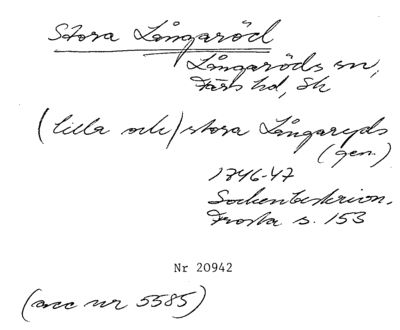 Stora Långaröd
Långaröds sn,
Färs hd, Sk
(lilla och) stora Långaryds
(gen.)
1746-47
Sockenbeskrivn.
Frosta s. 153
Nr 20942
(acc nr 5585)